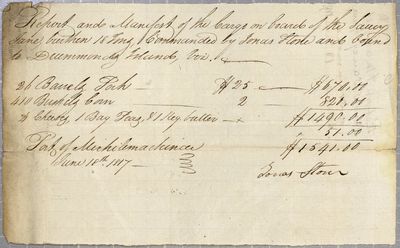 Report and Manifest of the Cargo on board of the Saucy
Jane burthen 18 Tons Commanded by Jonas Stone and bound
to Drummonds Islands, Viz.
26 Barrels Pork — $25 — $670.00
410 Bushels Corn 2 — 820.00
8 Chests, 1 Bag Feas, & 1 Keg butter — $1490.00
51.00
Port of Michilimackinac $1541.00
June 18th. 1817 —
Jonas Stone